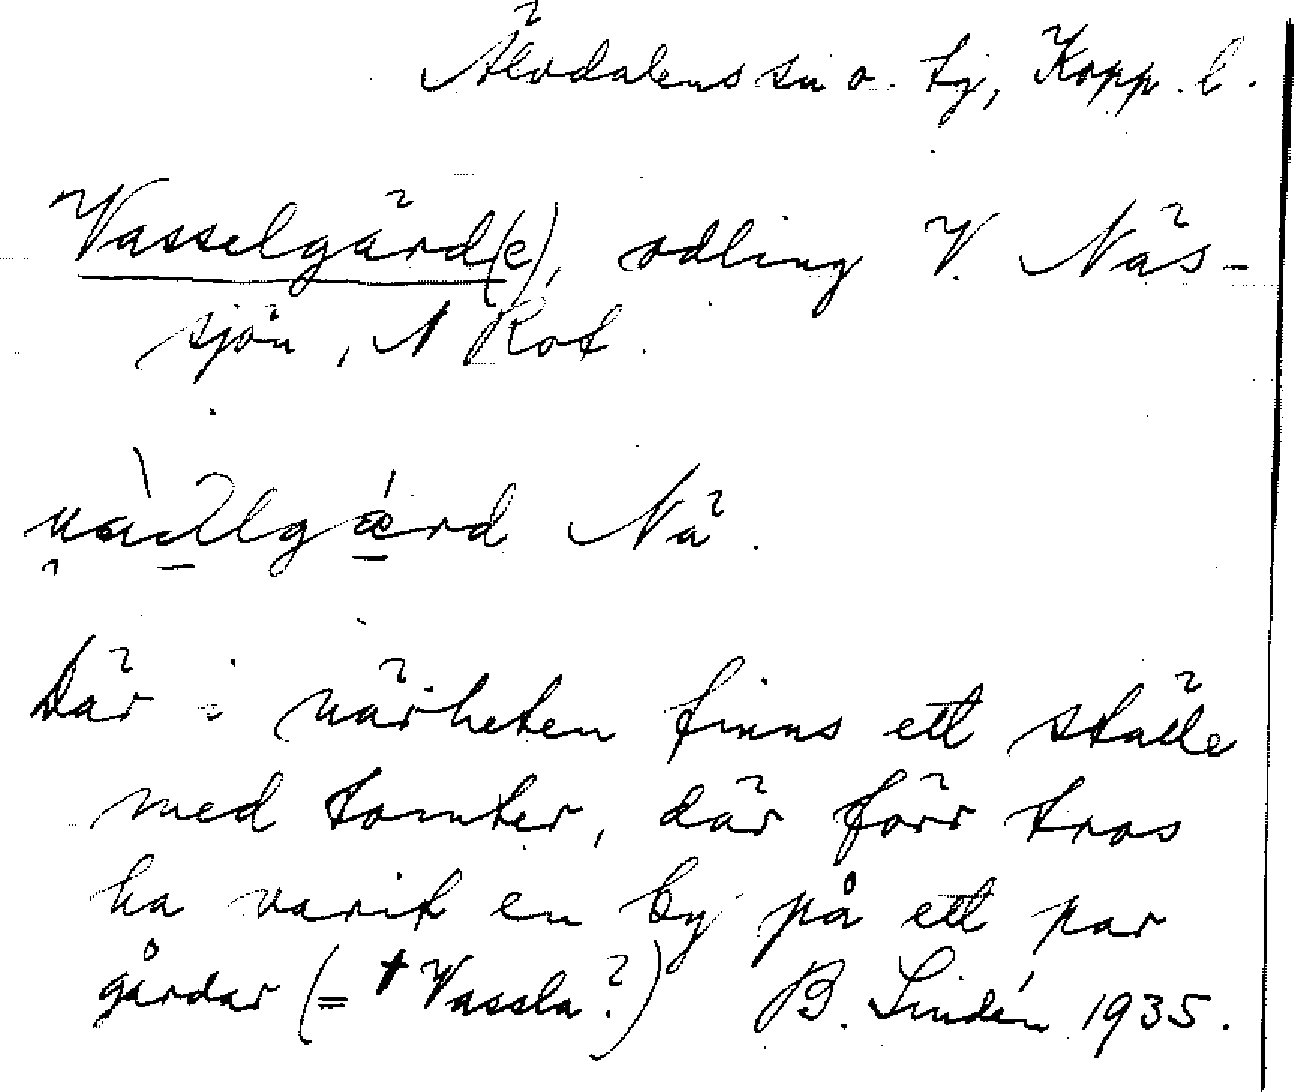 Älvdalens sn o. tg, Kopp. l.
Vasselgärd(e), odling V. Näs-
sjön, N Rot.
Nä.
Där i närheten finns ett ställe
med tomter, där förr tros
ha varit en by på ett par
gårdar (= † Vassla?) B. Lindén 1935.